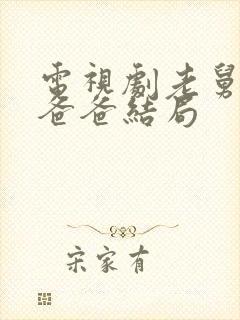 電視劇老舅
爸爸結局
宋家有